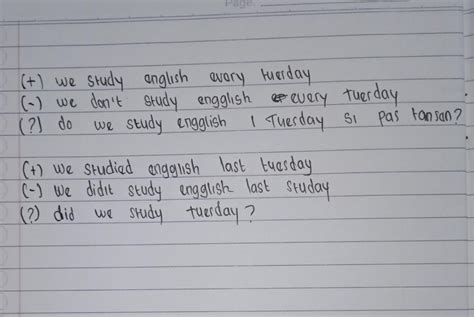 Page.
(+) we study english every tuesday
(-) we don't study engglish every tuesday
(?) do we study engglish I Tuesday si pas tansan?
(+) we studied engglish last tuesday
(-) we didit study engglish last studay
(?) did we study tuesday?